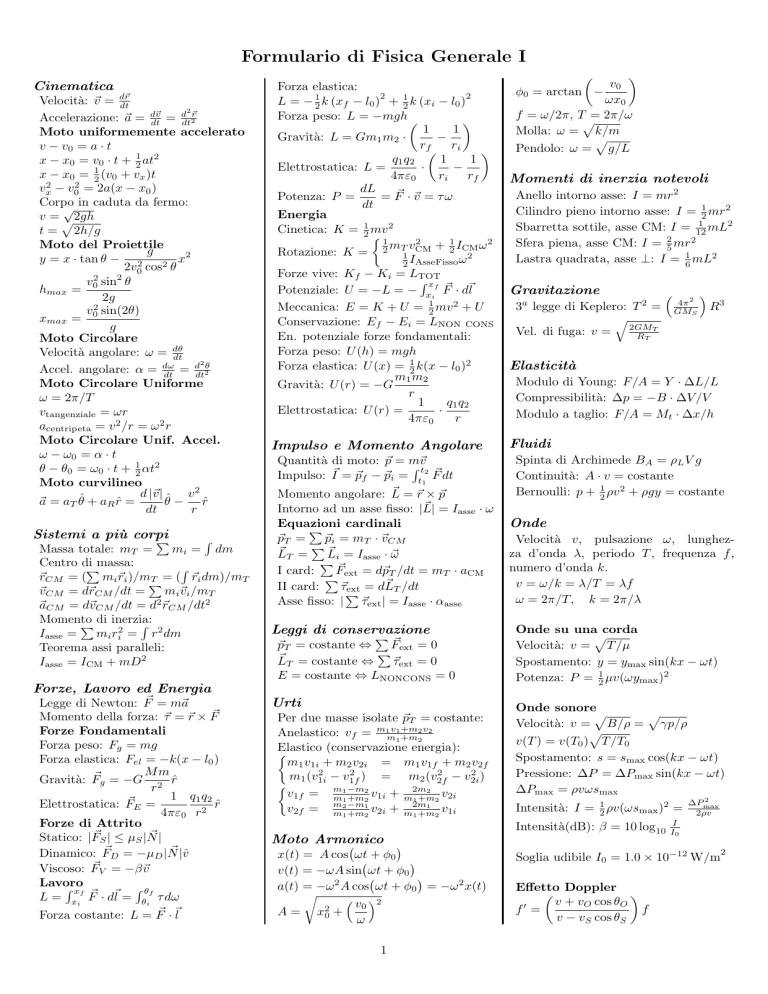 Formulario di Fisica Generale I
Cinematica
Velocità: $\vec{v} = \frac{d\vec{r}}{dt}$
Accelerazione: $\vec{a} = \frac{d\vec{v}}{dt} = \frac{d^2\vec{r}}{dt^2}$
Moto uniformemente accelerato
$v - v_0 = a \cdot t$
$x - x_0 = v_0 \cdot t + \frac{1}{2}at^2$
$x - x_0 = \frac{1}{2}(v_0 + v_x)t$
$v_x^2 - v_0^2 = 2a(x - x_0)$
Corpo in caduta da fermo:
$v = \sqrt{2gh}$
$t = \sqrt{2h/g}$
Moto del Proiettile
$y = x \cdot \tan\theta - \frac{g}{2v_0^2\cos^2\theta}x^2$
$h_{max} = \frac{v_0^2\sin^2\theta}{2g}$
$x_{max} = \frac{v_0^2\sin(2\theta)}{g}$
Moto Circolare
Velocità angolare: $\omega = \frac{d\theta}{dt}$
Accel. angolare: $\alpha = \frac{d\omega}{dt} = \frac{d^2\theta}{dt^2}$
Moto Circolare Uniforme
$\omega = 2\pi/T$
$v_{\text{tangenziale}} = \omega r$
$a_{\text{centripeta}} = v^2/r = \omega^2 r$
Moto Circolare Unif. Accel.
$\omega - \omega_0 = \alpha \cdot t$
$\theta - \theta_0 = \omega_0 \cdot t + \frac{1}{2}\alpha t^2$
Moto curvilineo
$\vec{a} = a_T\hat{\theta} + a_R\hat{r} = \frac{d|\vec{v}|}{dt}\hat{\theta} - \frac{v^2}{r}\hat{r}$
Sistemi a più corpi
Massa totale: $m_T = \sum m_i = \int dm$
Centro di massa:
$\vec{r}_{CM} = (\sum m_i\vec{r}_i)/m_T = (\int \vec{r}_i dm)/m_T$
$\vec{v}_{CM} = d\vec{r}_{CM}/dt = \sum m_i\vec{v}_i/m_T$
$\vec{a}_{CM} = d\vec{v}_{CM}/dt = d^2\vec{r}_{CM}/dt^2$
Momento di inerzia:
$I_{\text{asse}} = \sum m_i r_i^2 = \int r^2 dm$
Teorema assi paralleli:
$I_{\text{asse}} = I_{\text{CM}} + mD^2$
Forze, Lavoro ed Energia
Legge di Newton: $\vec{F} = m\vec{a}$
Momento della forza: $\vec{\tau} = \vec{r} \times \vec{F}$
Forze Fondamentali
Forza peso: $F_g = mg$
Forza elastica: $F_{el} = -k(x - l_0)$
Gravità: $\vec{F}_g = -G\frac{Mm}{r^2}\hat{r}$
Elettrostatica: $\vec{F}_E = \frac{1}{4\pi\varepsilon_0}\frac{q_1q_2}{r^2}\hat{r}$
Forze di Attrito
Statico: $|\vec{F}_S| \leq \mu_S|\vec{N}|$
Dinamico: $\vec{F}_D = -\mu_D|\vec{N}|\hat{v}$
Viscoso: $\vec{F}_V = -\beta\vec{v}$
Lavoro
$L = \int_{x_i}^{x_f} \vec{F} \cdot d\vec{l} = \int_{\theta_i}^{\theta_f} \tau d\omega$
Forza costante: $L = \vec{F} \cdot \vec{l}$
Forza elastica:
$L = -\frac{1}{2}k(x_f - l_0)^2 + \frac{1}{2}k(x_i - l_0)^2$
Forza peso: $L = -mgh$
Gravità: $L = Gm_1m_2 \cdot \left(\frac{1}{r_f} - \frac{1}{r_i}\right)$
Elettrostatica: $L = \frac{q_1q_2}{4\pi\varepsilon_0} \cdot \left(\frac{1}{r_i} - \frac{1}{r_f}\right)$
Potenza: $P = \frac{dL}{dt} = \vec{F} \cdot \vec{v} = \tau\omega$
Energia
Cinetica: $K = \frac{1}{2}mv^2$
Rotazione: $K = \begin{cases} \frac{1}{2}m_Tv_{\text{CM}}^2 + \frac{1}{2}I_{\text{CM}}\omega^2 \\ \frac{1}{2}I_{\text{AsseFisso}}\omega^2 \end{cases}$
Forze vive: $K_f - K_i = L_{\text{TOT}}$
Potenziale: $U = -L = -\int_{x_i}^{x_f} \vec{F} \cdot d\vec{l}$
Meccanica: $E = K + U = \frac{1}{2}mv^2 + U$
Conservazione: $E_f - E_i = L_{\text{NON CONS}}$
En. potenziale forze fondamentali:
Forza peso: $U(h) = mgh$
Forza elastica: $U(x) = \frac{1}{2}k(x - l_0)^2$
Gravità: $U(r) = -G\frac{m_1m_2}{r}$
Elettrostatica: $U(r) = \frac{1}{4\pi\varepsilon_0} \cdot \frac{q_1q_2}{r}$
Impulso e Momento Angolare
Quantità di moto: $\vec{p} = m\vec{v}$
Impulso: $\vec{I} = \vec{p}_f - \vec{p}_i = \int_{t_1}^{t_2} \vec{F}dt$
Momento angolare: $\vec{L} = \vec{r} \times \vec{p}$
Intorno ad un asse fisso: $|\vec{L}| = I_{\text{asse}} \cdot \omega$
Equazioni cardinali
$\vec{p}_T = \sum \vec{p}_i = m_T \cdot \vec{v}_{CM}$
$\vec{L}_T = \sum \vec{L}_i = I_{\text{asse}} \cdot \vec{\omega}$
I card: $\sum \vec{F}_{\text{ext}} = d\vec{p}_T/dt = m_T \cdot a_{\text{CM}}$
II card: $\sum \vec{\tau}_{\text{ext}} = d\vec{L}_T/dt$
Asse fisso: $|\sum \vec{\tau}_{\text{ext}}| = I_{\text{asse}} \cdot \alpha_{\text{asse}}$
Leggi di conservazione
$\vec{p}_T$ = costante $\Leftrightarrow \sum \vec{F}_{\text{ext}} = 0$
$\vec{L}_T$ = costante $\Leftrightarrow \sum \vec{\tau}_{\text{ext}} = 0$
$E$ = costante $\Leftrightarrow L_{\text{NONCONS}} = 0$
Urti
Per due masse isolate $\vec{p}_T$ = costante:
Anelastico: $v_f = \frac{m_1v_1+m_2v_2}{m_1+m_2}$
Elastico (conservazione energia):
$\begin{cases} m_1v_{1i} + m_2v_{2i} = m_1v_{1f} + m_2v_{2f} \\ m_1(v_{1i}^2 - v_{1f}^2) = m_2(v_{2f}^2 - v_{2i}^2) \end{cases}$
$\begin{cases} v_{1f} = \frac{m_1-m_2}{m_1+m_2}v_{1i} + \frac{2m_2}{m_1+m_2}v_{2i} \\ v_{2f} = \frac{m_2-m_1}{m_1+m_2}v_{2i} + \frac{2m_1}{m_1+m_2}v_{1i} \end{cases}$
Moto Armonico
$x(t) = A\cos(\omega t + \phi_0)$
$v(t) = -\omega A\sin(\omega t + \phi_0)$
$a(t) = -\omega^2 A\cos(\omega t + \phi_0) = -\omega^2 x(t)$
$A = \sqrt{x_0^2 + \left(\frac{v_0}{\omega}\right)^2}$
$\phi_0 = \arctan\left(-\frac{v_0}{\omega x_0}\right)$
$f = \omega/2\pi$, $T = 2\pi/\omega$
Molla: $\omega = \sqrt{k/m}$
Pendolo: $\omega = \sqrt{g/L}$
Momenti di inerzia notevoli
Anello intorno asse: $I = mr^2$
Cilindro pieno intorno asse: $I = \frac{1}{2}mr^2$
Sbarretta sottile, asse CM: $I = \frac{1}{12}mL^2$
Sfera piena, asse CM: $I = \frac{2}{5}mr^2$
Lastra quadrata, asse $\perp$: $I = \frac{1}{6}mL^2$
Gravitazione
3ª legge di Keplero: $T^2 = \left(\frac{4\pi^2}{GM_S}\right)R^3$
Vel. di fuga: $v = \sqrt{\frac{2GM_T}{R_T}}$
Elasticità
Modulo di Young: $F/A = Y \cdot \Delta L/L$
Compressibilità: $\Delta p = -B \cdot \Delta V/V$
Modulo a taglio: $F/A = M_t \cdot \Delta x/h$
Fluidi
Spinta di Archimede $B_A = \rho_L Vg$
Continuità: $A \cdot v$ = costante
Bernoulli: $p + \frac{1}{2}\rho v^2 + \rho gy$ = costante
Onde
Velocità $v$, pulsazione $\omega$, lunghez-
za d'onda $\lambda$, periodo $T$, frequenza $f$,
numero d'onda $k$.
$v = \omega/k = \lambda/T = \lambda f$
$\omega = 2\pi/T$, $k = 2\pi/\lambda$
Onde su una corda
Velocità: $v = \sqrt{T/\mu}$
Spostamento: $y = y_{\max}\sin(kx - \omega t)$
Potenza: $P = \frac{1}{2}\mu v(\omega y_{\max})^2$
Onde sonore
Velocità: $v = \sqrt{B/\rho} = \sqrt{\gamma p/\rho}$
$v(T) = v(T_0)\sqrt{T/T_0}$
Spostamento: $s = s_{\max}\cos(kx - \omega t)$
Pressione: $\Delta P = \Delta P_{\max}\sin(kx - \omega t)$
$\Delta P_{\max} = \rho v\omega s_{\max}$
Intensità: $I = \frac{1}{2}\rho v(\omega s_{\max})^2 = \frac{\Delta P_{\max}^2}{2\rho v}$
Intensità(dB): $\beta = 10\log_{10}\frac{I}{I_0}$
Soglia udibile $I_0 = 1.0 \times 10^{-12}$ W/m$^2$
Effetto Doppler
$f' = \left(\frac{v + v_O\cos\theta_O}{v - v_S\cos\theta_S}\right)f$
1